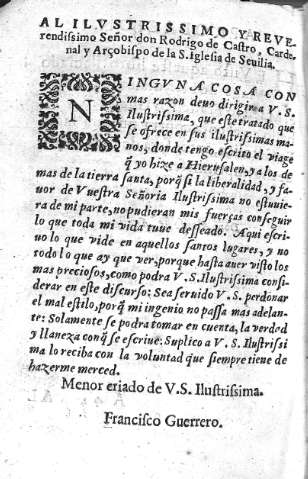 AL ILVSTRISSIMO Y REVE-
rendissimo Señor don Rodrigo de Castro, Carde-
nal y Arçobispo de la S. Iglesia de Seuilla.
NINGVNA COSA CON
mas razon deuo dirigir a V. S.
Ilustrissima, que este tratado que
se ofrece en sus ilustrissimas ma-
nos, donde tengo escrito el viage
q̃ yo hize a Hierusalen, y a los de
mas de la tierra santa, porq̃ si la liberalidad, y fa-
uor de Vuestra Señoria Ilustrissima no estuuie-
ra de mi parte, no pudieran mis fuerças conseguir
lo que toda mi vida tuue desseado. Aqui escri-
uo lo que vide en aquellos santos lugares, y no
todo lo que ay que ver, porque hasta auer visto los
mas preciosos, como podra V. S. Ilustrissima consi-
derar en este discurso: Sea seruido V. S. perdonar
el mal estilo, porq̃ mi ingenio no passa mas adelan-
te: Solamente se podra tomar en cuenta, la verdad
y llaneza conq̃ se escriue: Suplico a V. S. Ilustrissi
ma lo reciba con la voluntad que siempre tiene de
hazerme merced.
Menor criado de V. S. Ilustrissima.
Francisco Guerrero.